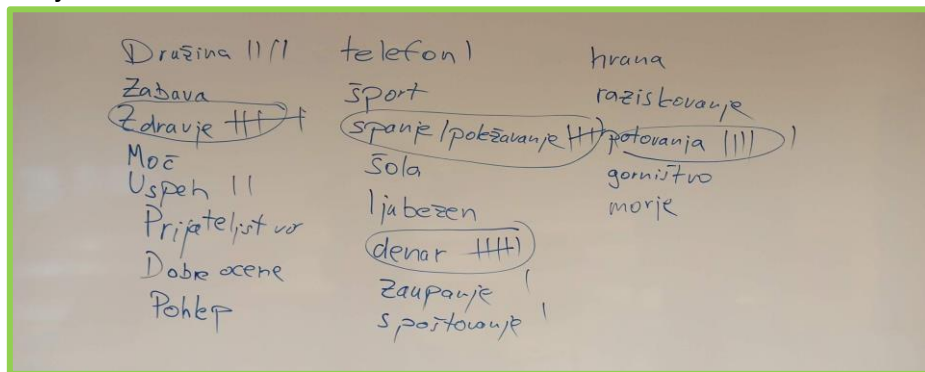 Družina ||||
Zabava
Zdravje |||| |
Moč
Uspeh ||
Prijateljstvo
Dobre ocene
Pohlep
telefon |
šport
spanje / poležavanje ||||
šola
ljubezen
denar |||| |
zaupanje |
spoštovanje |
hrana
raziskovanje
potovanja |||| |
gorništvo
morje